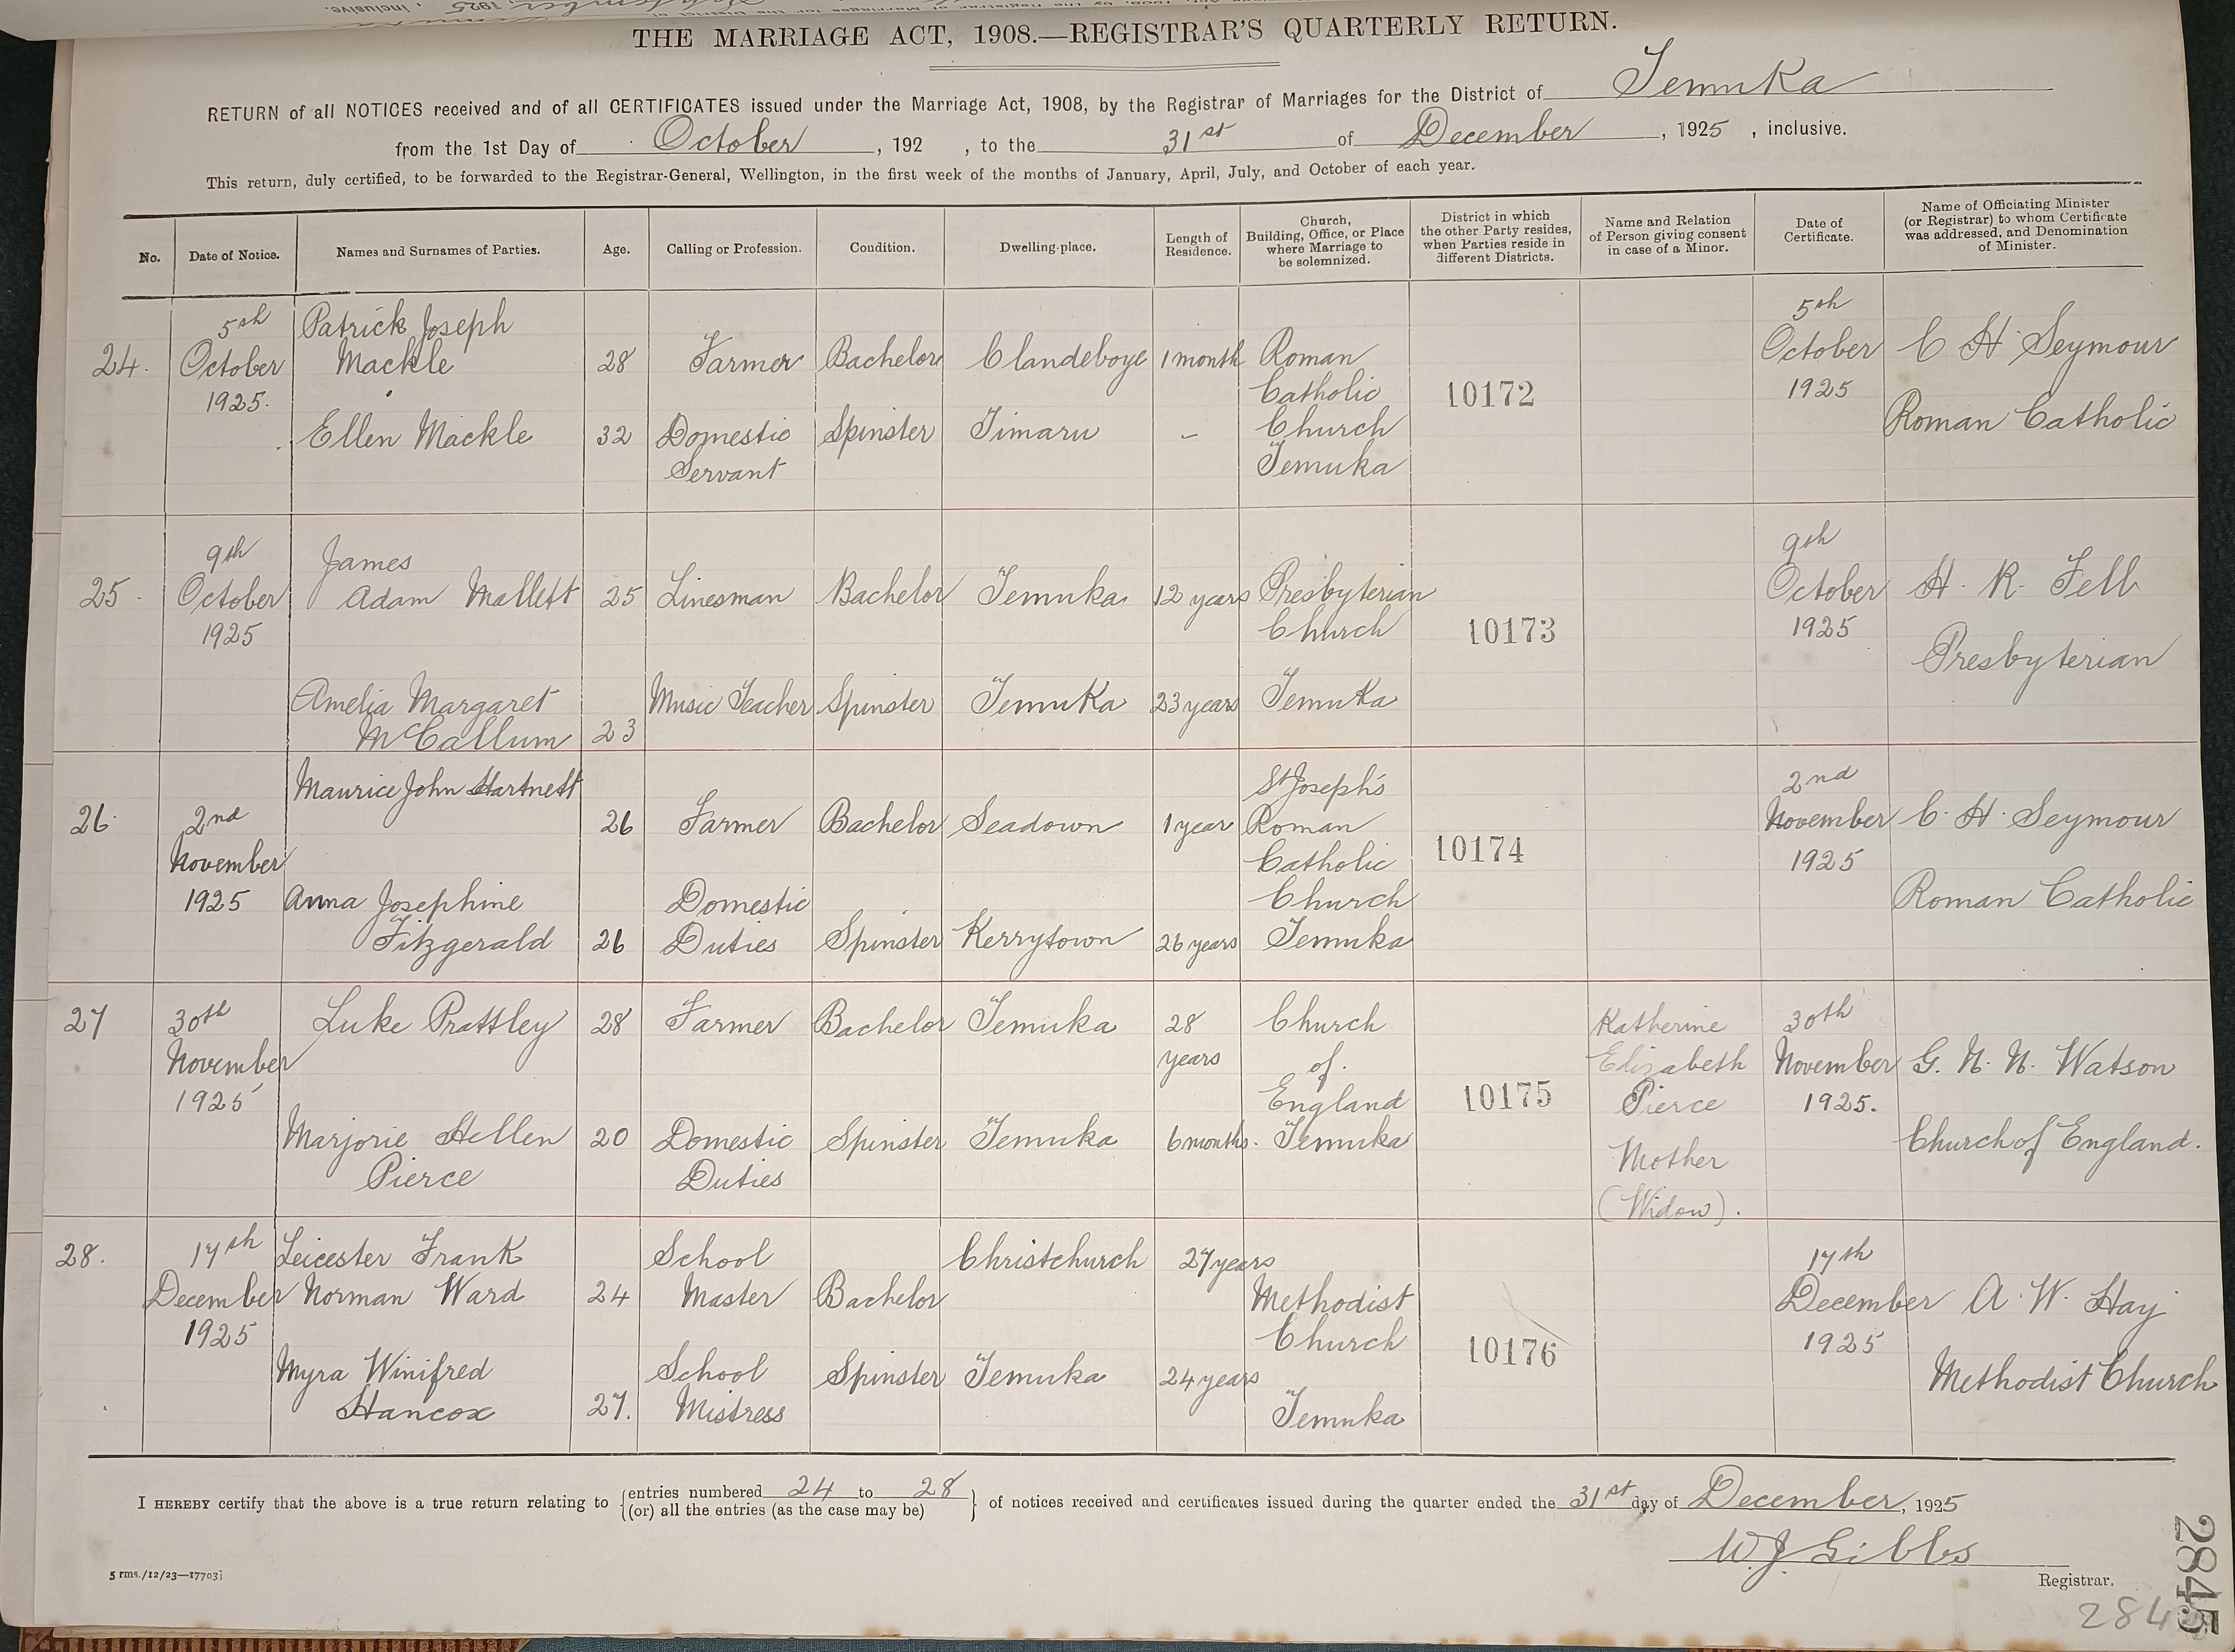 THE MARRIAGE ACT, 1908.—REGISTRAR'S QUARTERLY RETURN.
RETURN of all NOTICES received and of all CERTIFICATES issued under the Marriage Act, 1908, by the Registrar of Marriages for the District of Temuka
from the 1st Day of October, 192 , to the 31st of December, 1925 , inclusive.
This return, duly certified, to be forwarded to the Registrar-General, Wellington, in the first week of the months of January, April, July, and October of each year.
No.
Date of Notice.
Names and Surnames of Parties.
Age.
Calling or Profession.
Condition.
Dwelling-place.
Length of
Residence.
Church,
Building, Office, or Place
where Marriage to
be solemnized.
District in which
the other Party resides,
when Parties reside in
different Districts.
Name and Relation
of Person giving consent
in case of a Minor.
Date of
Certificate.
Name of Officiating Minister
(or Registrar) to whom Certificate
was addressed, and Denomination
of Minister.
24.
5th
October
1925.
Patrick Joseph
Mackle
28
Farmer
Bachelor
Clandeboye
1 month
Roman
Catholic
Church
Temuka
10172
5th
October
1925
C H Seymour
Roman Catholic
Ellen Mackle
32
Domestic
Servant
Spinster
Timaru
-
25.
9th
October
1925
James
Adam Mallett
25
Linesman
Bachelor
Temuka
12 years
Presbyterian
Church
Temuka
10173
9th
October
1925
H. R. Fell
Presbyterian
Amelia Margaret
McCallum
23
Music Teacher
Spinster
Temuka
23 years
26.
2nd
November
1925
Maurice John Hartnett
26
Farmer
Bachelor
Seadown
1 year
St Joseph's
Roman
Catholic
Church
Temuka
10174
2nd
November
1925
C. H. Seymour
Roman Catholic
Anna Josephine
Fitzgerald
26
Domestic
Duties
Spinster
Kerrytown
26 years
27
30th
November
1925
Luke Prattley
28
Farmer
Bachelor
Temuka
28
years
Church
of
England
Temuka
10175
Katherine
Elizabeth
Pierce
Mother
(Widow).
30th
November
1925.
G. N. N. Watson
Church of England.
Marjorie Hellen
Pierce
20
Domestic
Duties
Spinster
Temuka
6 months.
28.
17th
December
1925
Leicester Frank
Norman Ward
24
School
Master
Bachelor
Christchurch
27 years
Methodist
Church
Temuka
10176
17th
December
1925
A. W. Hay
Methodist Church
Myra Winifred
Hancox
27.
School
Mistress
Spinster
Temuka
24 years
I HEREBY certify that the above is a true return relating to {entries numbered 24 to 28
(or) all the entries (as the case may be)} of notices received and certificates issued during the quarter ended the 31st day of December, 1925
W. J. Gibbs
Registrar.
5 rms./12/23—17703]
2845